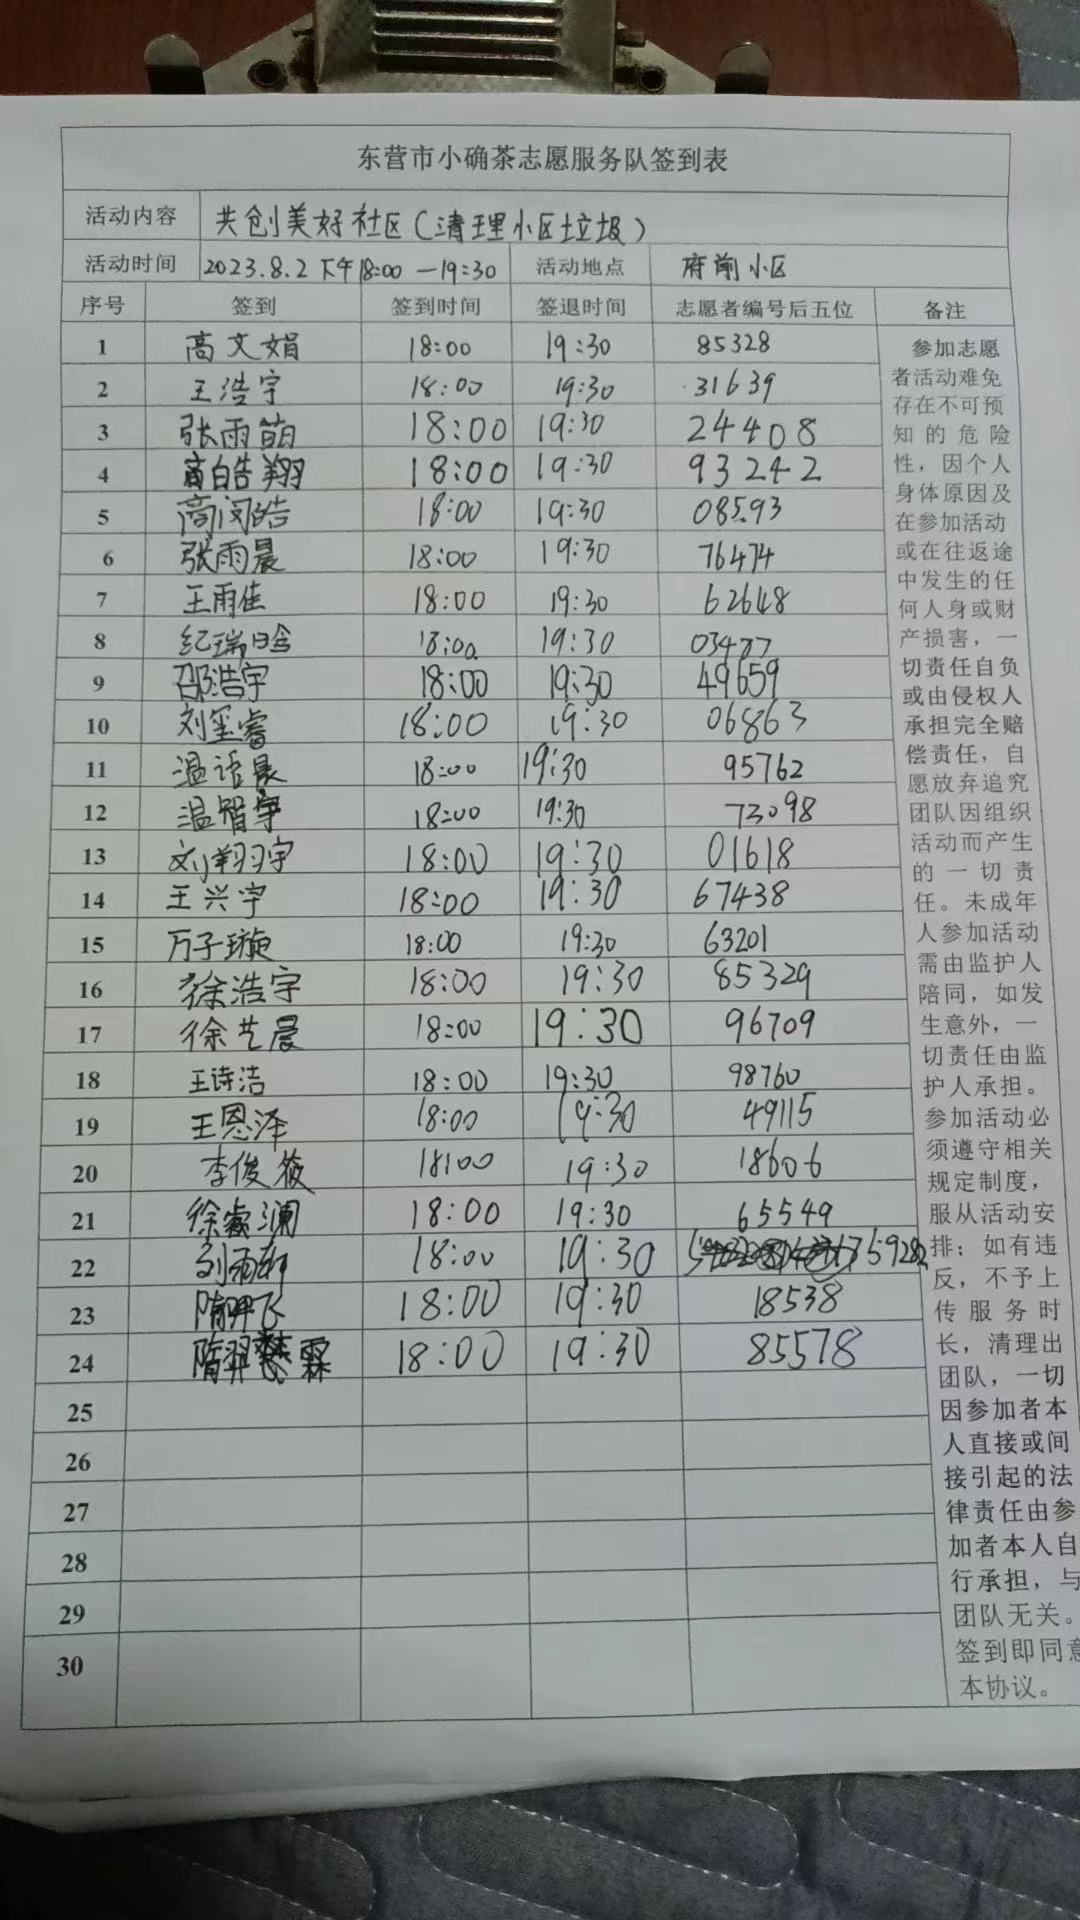 东营市小确茶志愿服务队签到表
活动内容 共创美好社区(清理小区垃圾)
活动时间 2023.8.2 下午18:00—19:30 活动地点 府前小区
序号 签到 签到时间 签退时间 志愿者编号后五位 备注
1 高文娟 18:00 19:30 85328
2 王浩宇 18:00 19:30 31639
3 张雨萌 18:00 19:30 24408
4 高皓翔 18:00 19:30 93242
5 高闵皓 18:00 19:30 08593
6 张雨晨 18:00 19:30 76474
7 王雨佳 18:00 19:30 62648
8 纪瑞晗 18:00 19:30 03477
9 邵浩宇 18:00 19:30 49659
10 刘玺睿 18:00 19:30 06863
11 温语晨 18:00 19:30 95762
12 温智宇 18:00 19:30 73098
13 刘翔宇 18:00 19:30 01618
14 王兴宇 18:00 19:30 67438
15 万子璇 18:00 19:30 63201
16 徐浩宇 18:00 19:30 85329
17 徐艺晨 18:00 19:30 96709
18 王诗洁 18:00 19:30 98760
19 王恩泽 18:00 19:30 49115
20 李俊筱 18:00 19:30 18606
21 徐睿澜 18:00 19:30 65549
22 刘雨轩 18:00 19:30
23 隋羿飞 18:00 19:30 18538
24 隋羿霖 18:00 19:30 85578
25
26
27
28
29
30
参加志愿
者活动难免
存在不可预
知的危险
性，因个人
身体原因及
在参加活动
或在往返途
中发生的任
何人身或财
产损害，一
切责任自负
或由侵权人
承担完全赔
偿责任，自
愿放弃追究
团队因组织
活动而产生
的一切责
任。未成年
人参加活动
需由监护人
陪同，如发
生意外，一
切责任由监
护人承担。
参加活动必
须遵守相关
规定制度，
服从活动安
排；如有违
反，不予上
传服务时
长，清理出
团队，一切
因参加者本
人直接或间
接引起的法
律责任由参
加者本人自
行承担，与
团队无关。
签到即同意
本协议。